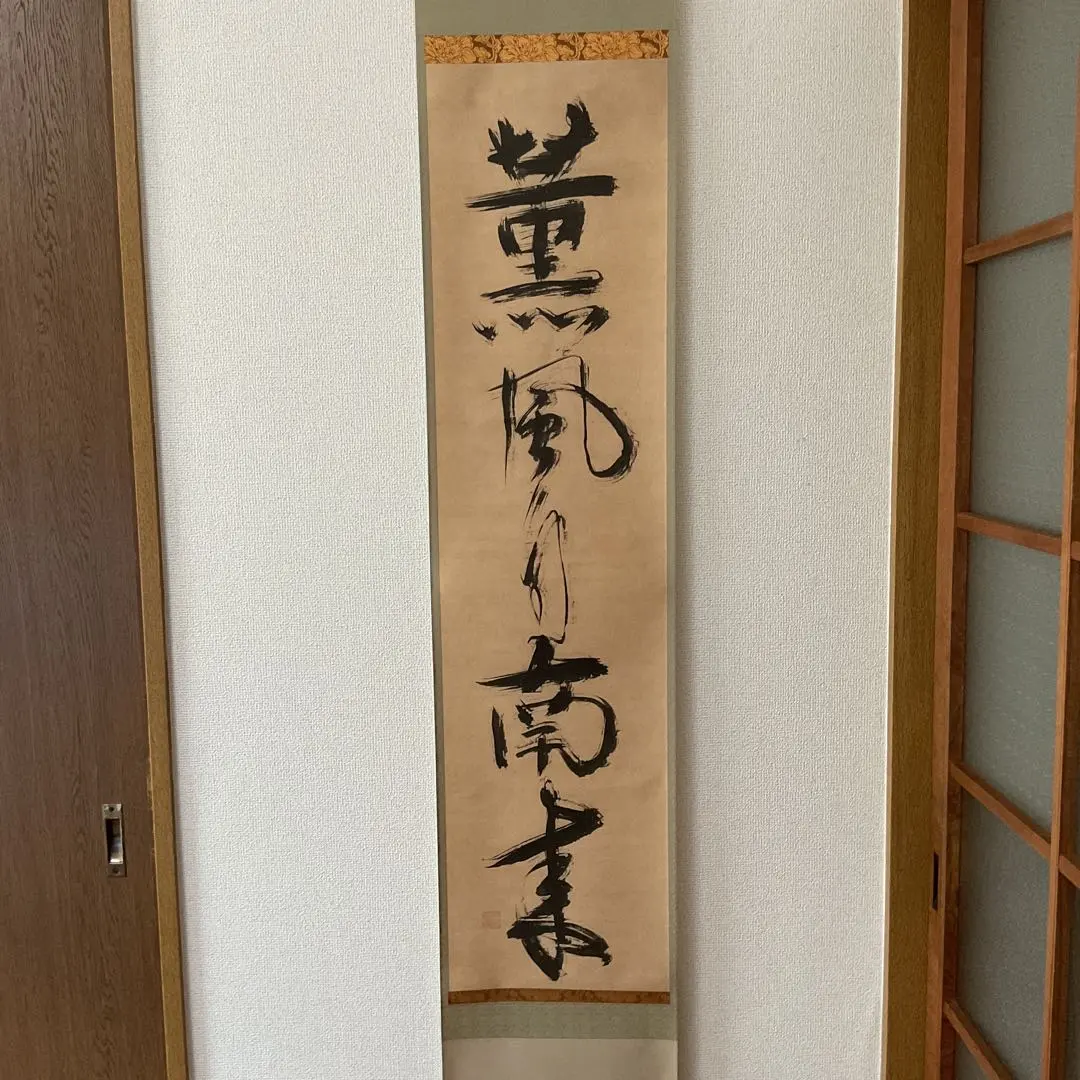 薫風自南来